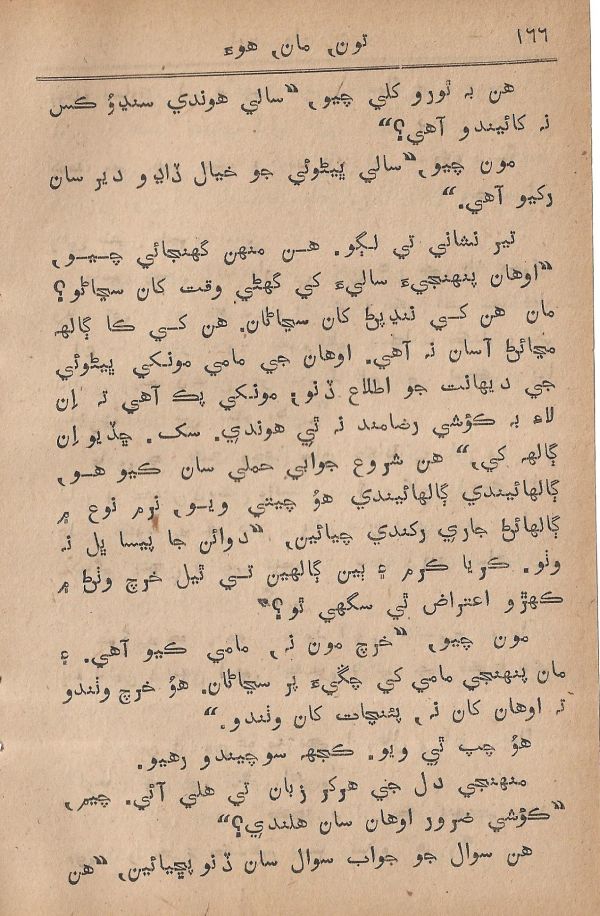 ۱٦٦
تون, مان, هوءَ
هن بہ ٿورو کلي چيو, ”سالي هوندي سنڍوُ ڪس
نہ کائيندو آهي؟“
مون چيو, ”سالي ڀيڻوئي جو خيال ڏاڍو دير سان
رکيو آهي.“
تير نشاني تي لڳو. هن منهن گهنجائي چيو,
”اوهان پنهنجيءَ ساليءَ کي گهڻي وقت کان سڃاڻو؟
مان هن کي ننڍپڻ کان سڃاڻان. هن کي ڪا ڳالهہ
مڃائڻ آسان نہ آهي. اوهان جي مامي مونکي ڀيڻوئي
جي ديهانت جو اطلاع ڏنو; مونکي پڪ آهي تہ اِن
لاءِ بہ ڪؤشي رضامند نہ ٿي هوندي. سک. ڇڏيو اِن
ڳالهہ کي,“ هن شروع جوابي حملي سان ڪيو هو,
ڳالهائيندي ڳالهائيندي هوُ چيتي ويو, نرم نوع ۾
ڳالهائڻ جاري رکندي چيائين, ”دوائن جا پيسا ڀل نہ
وٺو. ڪريا ڪرم ۽ ٻين ڳالهين تي ٿيل خرچ وٺڻ ۾
ڪهڙو اعتراض ٿي سگهي ٿو؟“
مون چيو, ”خرچ مون نہ, مامي ڪيو آهي. ۽
مان پنهنجي مامي کي چڱيءَ پر سڃاڻان. هوُ خرچ وٺندو
تہ اوهان کان نہ, پئنچات کان وٺندو.“
هوُ چپ ٿي ويو. ڪجهہ سوچيندو رهيو.
منهنجي دل جي هرکر زبان تي هلي آئي. چيم,
”ڪؤشي ضرور اوهان سان هلندي؟“
هن سوال جو جواب سوال سان ڏنو پڇيائين, ”هن